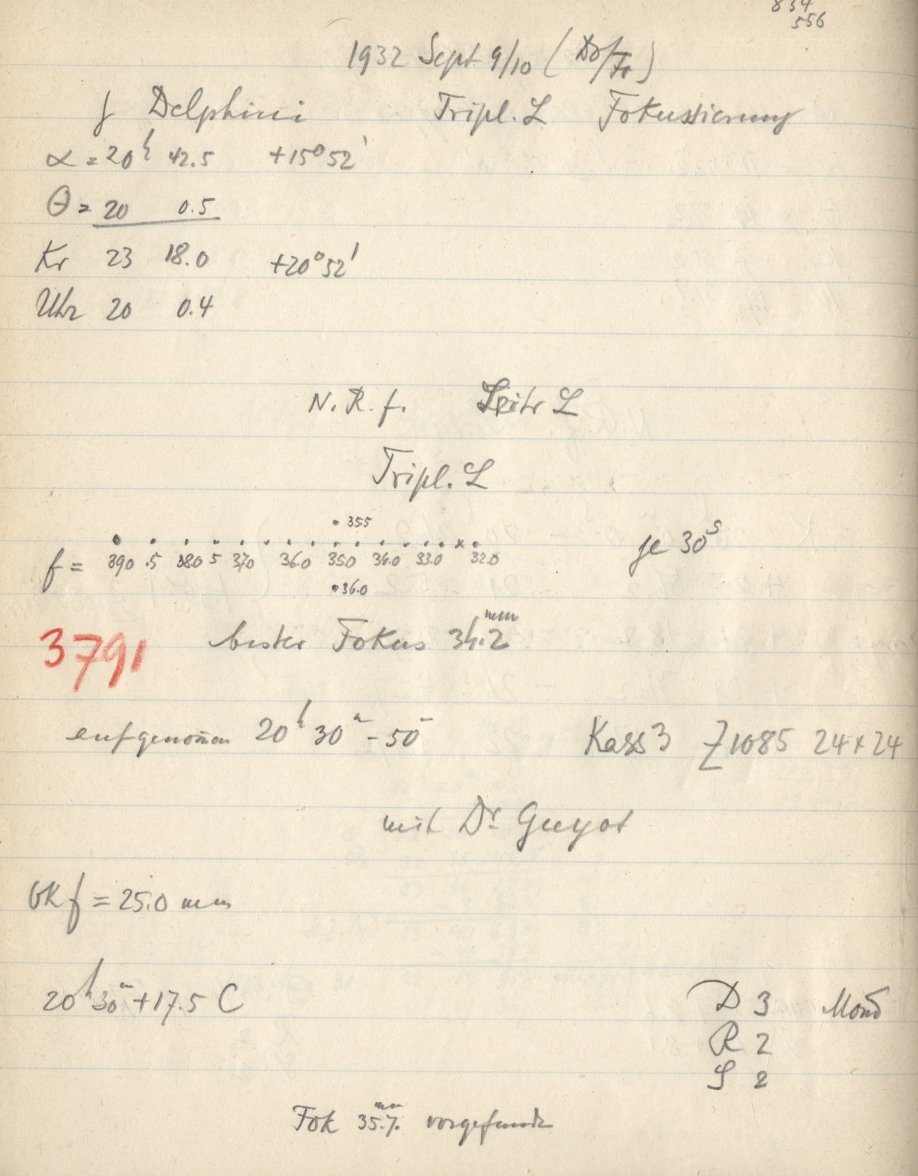 834
556
1932 Sept 9/10 (Do/Fr)
γ Delphini Tripl. L Fokussierung
α = 20h 42.5 +15°52'
Θ = 20 0.5
Kr 23 18.0 +20°52'
Uhr 20 0.4
N. R. f. L
Tripl. L
• 355
f = 390 .5 380 5 370 360 350 340 330 320 je 30s
• 360
3791 bester Fokus 34.2 mm
aufgenommen 20h 30m – 50m Kass 3 Z 1085 24 × 24
mit Dr Guyot
GK f = 25.0 mm
20h 30m + 17.5 C D 3 Mond
R 2
S 2
Fok 35.7 mm vorgefunden